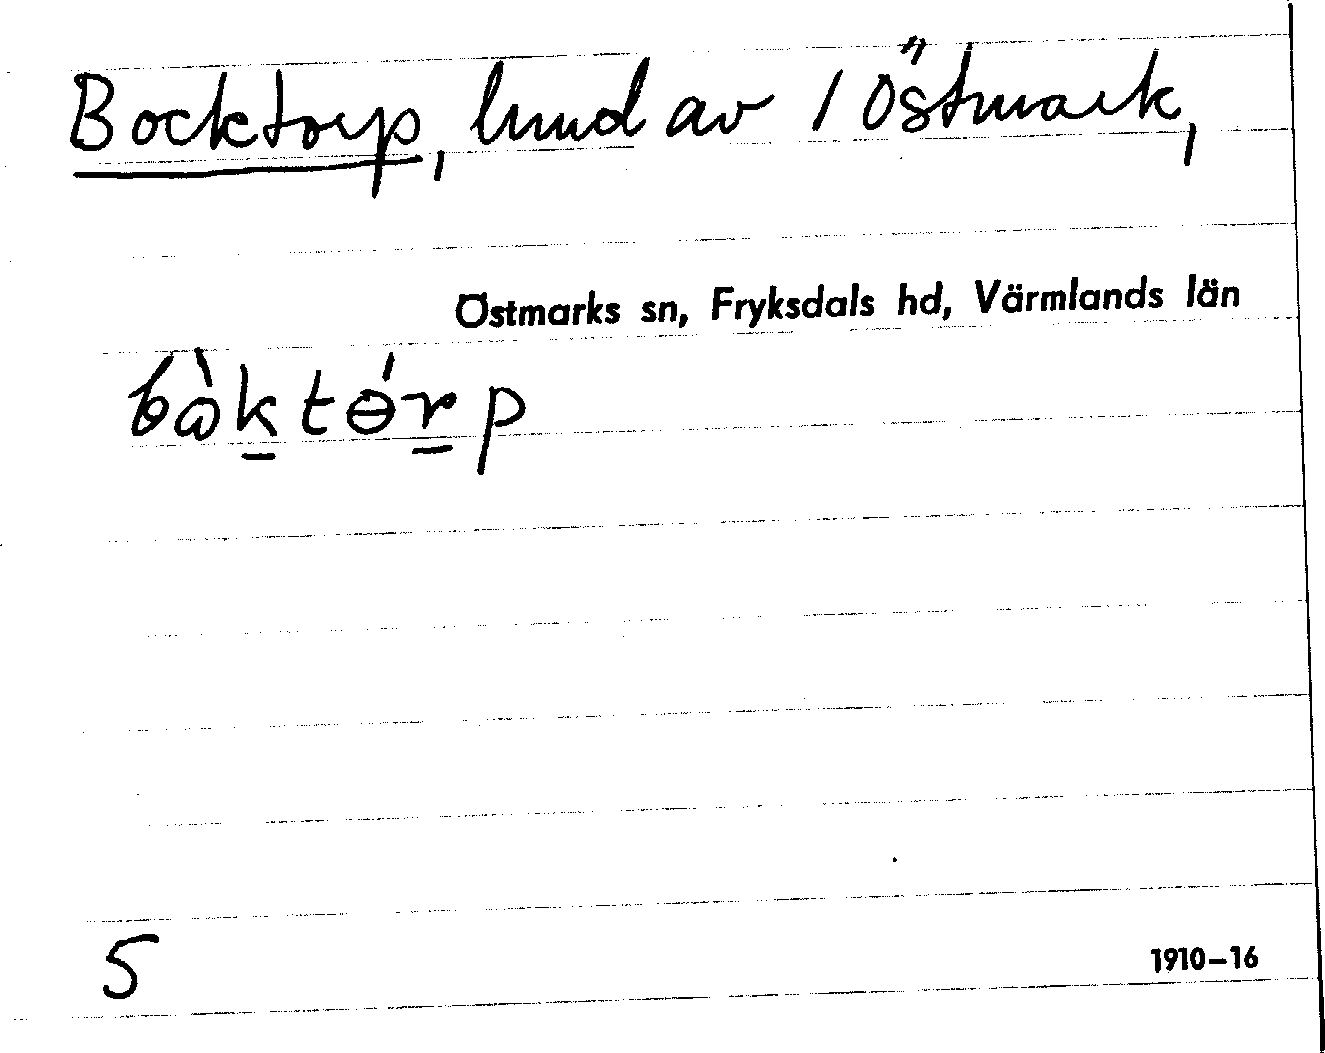 Bocktorp, lmud av 1 Östmark,
Östmarks sn, Fryksdals hd, Värmlands län
bòktɵ́rp
5
1910–16